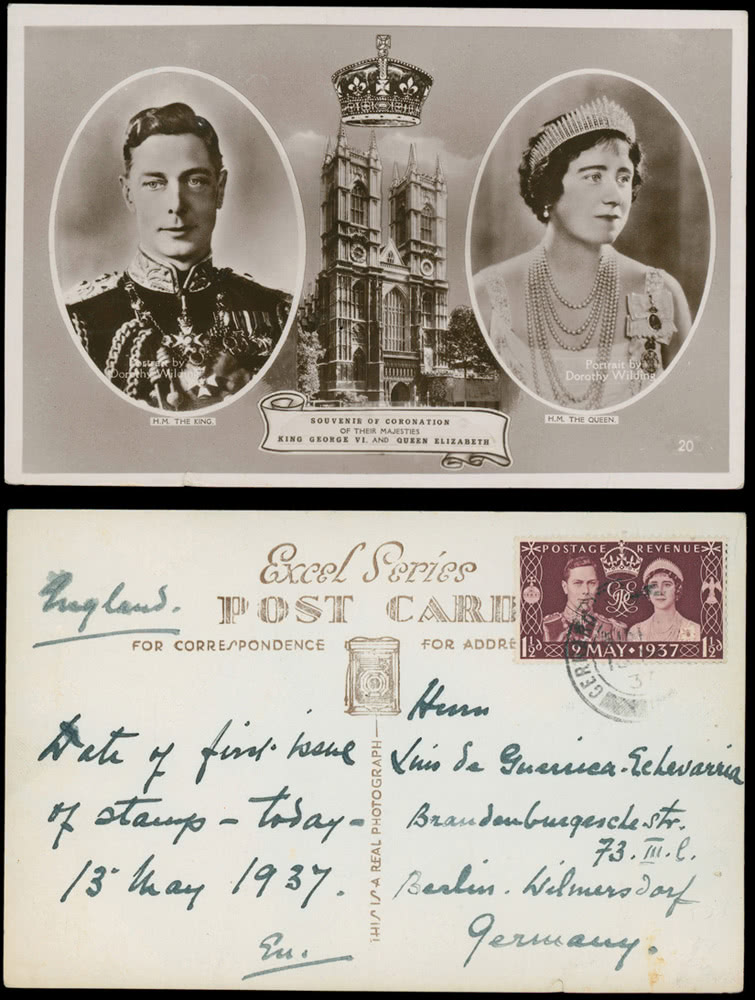 Portrait by
Dorothy Wilding
H.M. THE KING.
SOUVENIR OF CORONATION
OF THEIR MAJESTIES
KING GEORGE VI. AND QUEEN ELIZABETH
Portrait by
Dorothy Wilding
H.M. THE QUEEN.
20
England.
Excel Series
POST CARD
FOR CORRESPONDENCE
FOR ADDRE
POSTAGE REVENUE
1½d 12 MAY · 1937 1½d
GERR
13
37
Date of first issue
of stamp – today –
13 May 1937.
En.
THIS IS A REAL PHOTOGRAPH
Herrn
Luis de Guernica-Echevarria
Brandenburgesche str.
73. III. l.
Berlin. Wilmersdorf
Germany.